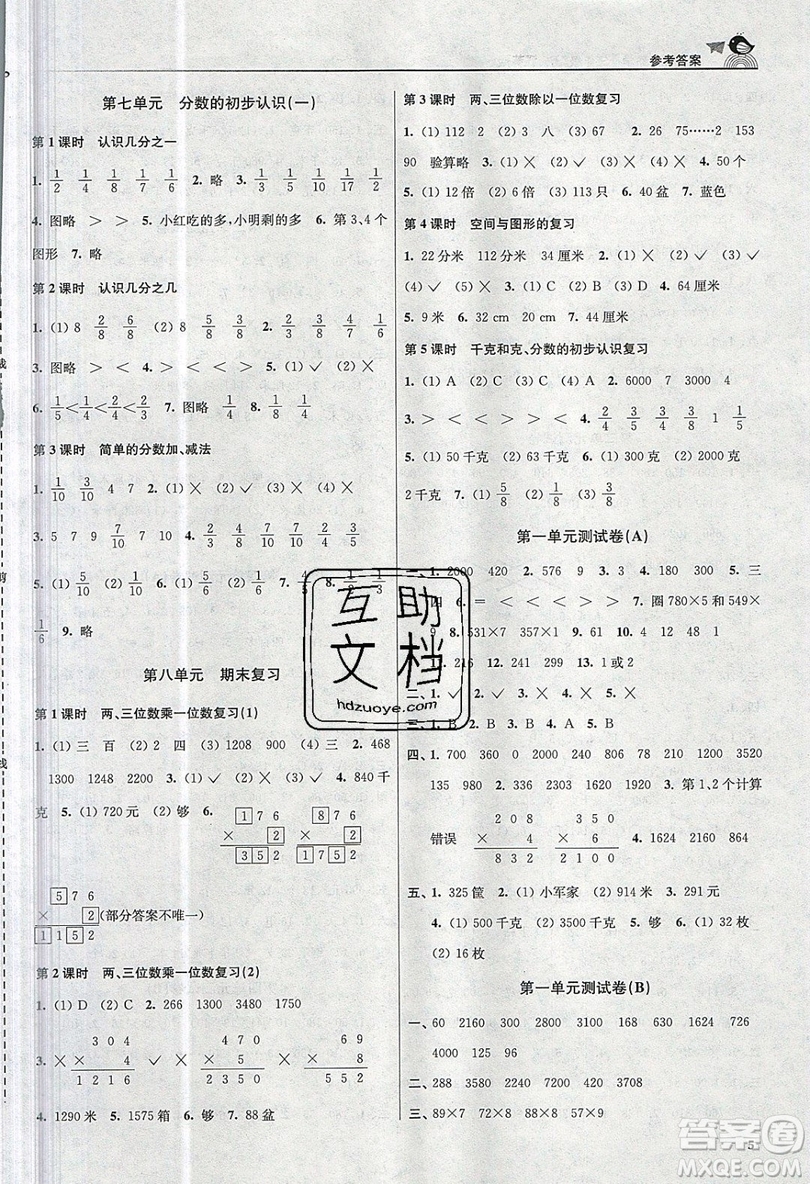 参考答案
第七单元 分数的初步认识(一)
第1课时 认识几分之一
1. 1/2 1/4 1/8 1/7 1/6 2. 略 3. 1/3 1/5 1/10 1/17 1/2
4. 图略 > > 5. 小红吃的多,小明剩的多 6. 第3、4个
图形 7. 略
第2课时 认识几分之几
1. (1) 8 2/8 6/8 (2) 8 5/8 3/8 2.
3. 图略 > < 4. < < > > > 5.
6. 1/5<1/4<1/3<1/2 7. 图略 1/4 8. 1/4
第3课时 简单的分数加、减法
1. 1/10 3/10 4 7 2. (1)× (2)✓ (3)✓ (4)×
3. 5 2 9 7/10 4.
5. (1) (2) 6. 7. 8.
1/6 9. 略
第八单元 期末复习
第1课时 两、三位数乘一位数复习(1)
1. (1) 三 百 (2) 2 四 (3) 1208 900 (4) 三 2. 468
1300 1248 2200 3. > > < = 4. 840千
克 5. (1) 720元 (2) 够 6. 176 876
× 2 × 2
352 1752
576
× 2 (部分答案不唯一)
1152
第2课时 两、三位数乘一位数复习(2)
1. (1) D (2) C 2. 266 1300 3480 1750
304 450 69
3. × × × 4 × 5 × 8
1216 2250 552
4. 1290米 5. 1575箱 6. 够 7. 88盆
第3课时 两、三位数除以一位数复习
1. (1) 112 2 (2) 3 八 (3) 67 2. 26 75……2 153
90 验算略 3. × × ✓ × 4. 50个
5. (1) 12倍 (2) 6倍 (3) 113只 6. 40盆 7. 蓝色
第4课时 空间与图形的复习
1. 22分米 112分米 34厘米 2. (1)× (2)✓ (3)✓
(4)✓ (5)× 3. (1) D (2) C (3) B (4) D 4. ×
5. 9米 6. 32 cm 20 cm 7. 44厘米 8. 略
第5课时 千克和克、分数的初步认识复习
1. (1) A (2) C (3) A (4) C 2. 6000 7 3000 4
3. > < > < < 4. 2/3 2/4 3/5 1/2 1/5
5. (1) 50千克 (2) 60千克 6. (1) 300克 (2) 2000克
2千克 7. (1) 5/8 (2) 3/8
第一单元测试卷(A)
一、1. 2000 420 2. 576 9 3. > 4. 0 5. 三
四 6. = < < > > 7. 圈780×5和549×
9 8. 531×7 357×1 9. 11 10. 4 27 48
11. 207 12. 241 299 13. 1或2
二、1. ✓
三、1. B 2. B
四、1. 700 360 0 2000 240 2800 5600
135 980 2. 3. 第1、2个计算
208 350
错误 × 4 × 6 4. 1624 2160 864
832 2100
五、1. 325筐 2. (1) 小军家 (2) 914米 3. 291元
4. (1) 500千克 (2) 3500千克 5. 够 6. (1) 32枚
(2) 16枚
第一单元测试卷(B)
一、60 2160 300 2800 3100 132 1648 726
4000 125 96
二、288 3580 2240 7200 4320 3708
三、89×7 78×9 54×8 57×9
5
互助文档
hdzuoye.com
答案圈
MXQE.COM